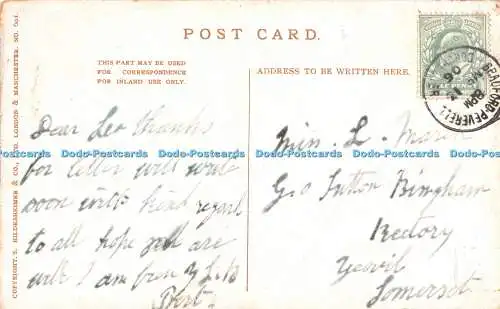 POST CARD.
THIS PART MAY BE USED
FOR CORRESPONDENCE
FOR INLAND USE ONLY.
ADDRESS TO BE WRITTEN HERE.
COPYRIGHT, S. HILDESHEIMER & CO., LTD. LONDON & MANCHESTER. NO.
Dear Leo thanks
for letter will write
soon with kind regard
to all hope all are
well I am
Bert
Miss. L.
Sutton Bingham
Rectory
Yeovil
Somerset
HALF PENNY
BRADFORD-PEVERELL
Dodo-Postcards Dodo-Postcards Dodo-Postcards Dodo-Postcards